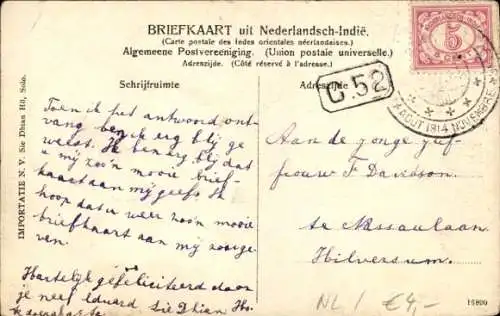 BRIEFKAART uit Nederlandsch-Indië.
(Carte postale des Indes orientales néerlandaises.)
Algemeene Postvereeniging. (Union postale universelle.)
Adreszijde. (Côté réservé à l'adresse.)
Schrijfruimte
Adreszijde
5
CENT
C.52
AOUT 1914 NOVEMBRE
IMPORTATIE N. V. Sie Dhian Hö, Solo.
Toen ik het antwoord ont-
vang ben ik erg blij ge
weest. Ik bemerg blij dat
u mij zoo'n mooie brief-
kaart aan mij geeft. Ik
hoop dat u weer zoo'n mooie
briefkaart aan mij zou ge-
ven.
Hartelijk gefeliciteerd door
je neef Eduard. Sie Dhian Ho.
Aan de jonge juf-
frouw F Davidson
te Nassaulaan
Hilversum.
16800
NL / €4,-